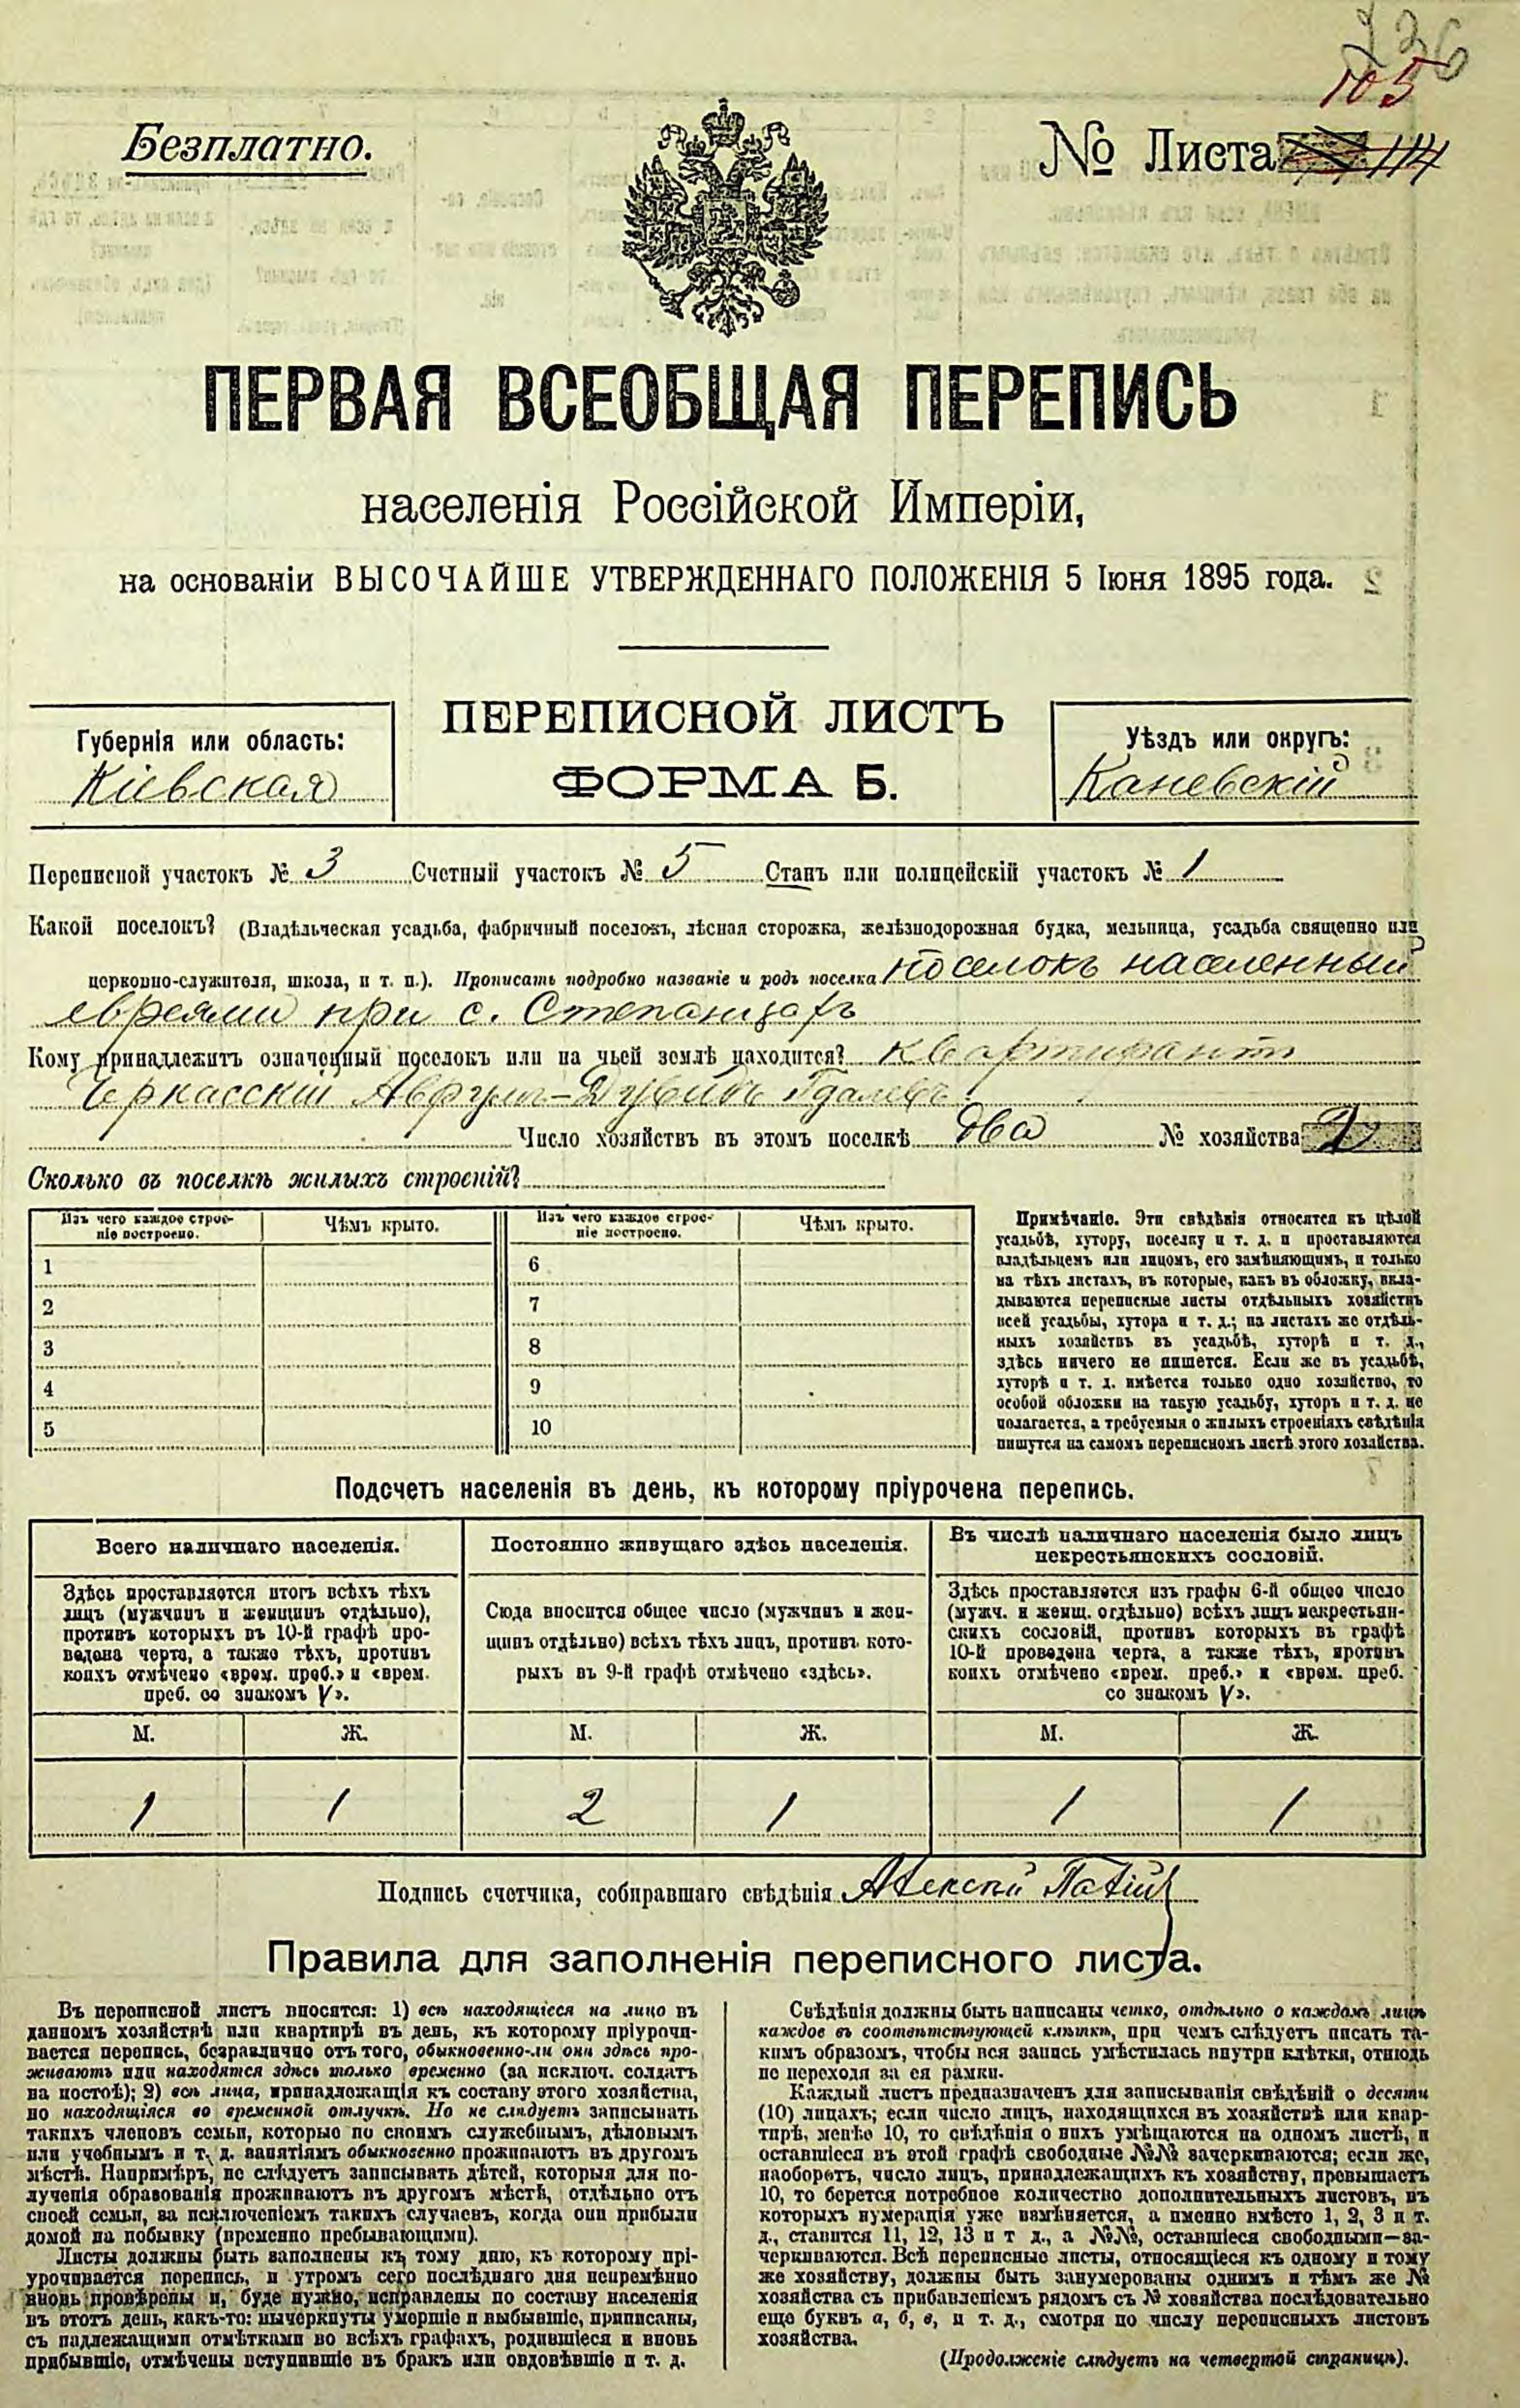 236
105
Безплатно.
№ Листа 114
ПЕРВАЯ ВСЕОБЩАЯ ПЕРЕПИСЬ
населенія Россійской Имперіи,
на основаніи ВЫСОЧАЙШЕ УТВЕРЖДЕННАГО ПОЛОЖЕНІЯ 5 Іюня 1895 года.
ПЕРЕПИСНОЙ ЛИСТЪ
ФОРМА Б.
Губернія или область:
Кіевская
Уѣздъ или округъ:
Каневскій
Переписной участокъ № 3 Счетный участокъ № 5 Станъ или полицейскій участокъ № 1
Какой поселокъ? (Владѣльческая усадьба, фабричный поселокъ, лѣсная сторожка, желѣзнодорожная будка, мельница, усадьба священно или
церковно-служителя, школа, и т. п.). Прописать подробно названіе и родъ поселка поселокъ населенный
евреями при с. Степанцахъ
Кому принадлежитъ означенный поселокъ или на чьей землѣ находится? квартирантъ
Черкасскій Аврумъ-Дувидъ Гдалевъ
Число хозяйствъ въ этомъ поселкѣ два № хозяйства 2
Сколько въ поселкѣ жилыхъ строеній?
Изъ чего каждое строе-
ніе построено.
Чѣмъ крыто.
Изъ чего каждое строе-
ніе построено.
Чѣмъ крыто.
1 6
2 7
3 8
4 9
5 10
Примѣчаніе. Эти свѣдѣнія относятся къ цѣлой
усадьбѣ, хутору, поселку и т. д. и проставляются
владѣльцемъ или лицомъ, его замѣняющимъ, и только
на тѣхъ листахъ, въ которые, какъ въ обложку, вкла-
дываются переписные листы отдѣльныхъ хозяйствъ
всей усадьбы, хутора и т. д.; на листахъ же отдѣль-
ныхъ хозяйствъ въ усадьбѣ, хуторѣ и т. д.,
здѣсь ничего не пишется. Если же въ усадьбѣ,
хуторѣ и т. д. имѣется только одно хозяйство, то
особой обложки на такую усадьбу, хуторъ и т. д. не
полагается, а требуемыя о жилыхъ строеніяхъ свѣдѣнія
пишутся на самомъ переписномъ листѣ этого хозяйства.
Подсчетъ населенія въ день, къ которому пріурочена перепись.
Всего наличнаго населенія.
Здѣсь проставляются итогъ всѣхъ тѣхъ
лицъ (мужчинъ и женщинъ отдѣльно),
противъ которыхъ въ 10-й графѣ про-
ведена черта, а также тѣхъ, противъ
коихъ отмѣчено «врем. преб.» и «врем.
преб. со знакомъ V».
М. Ж.
1 1
Постоянно живущаго здѣсь населенія.
Сюда вносится общее число (мужчинъ и жен-
щинъ отдѣльно) всѣхъ тѣхъ лицъ, противъ кото-
рыхъ въ 9-й графѣ отмѣчено «здѣсь».
М. Ж.
2 1
Въ числѣ наличнаго населенія было лицъ
некрестьянскихъ сословій.
Здѣсь проставляется изъ графы 6-й общее число
(мужч. и женщ. отдѣльно) всѣхъ лицъ некрестьян-
скихъ сословій, противъ которыхъ въ графѣ
10-й проведена черта, а также тѣхъ, противъ
коихъ отмѣчено «врем. преб.» и «врем. преб.
со знакомъ V».
М. Ж.
1 1
Подпись счетчика, собиравшаго свѣдѣнія Алексѣй
Правила для заполненія переписного листа.
Въ переписной листъ вносятся: 1) всѣ находящіеся на лицо въ
данномъ хозяйствѣ или квартирѣ въ день, къ которому пріурочи-
вается перепись, безразлично отъ того, обыкновенно-ли они здѣсь про-
живаютъ или находятся здѣсь только временно (за исключ. солдатъ
на постоѣ); 2) всѣ лица, принадлежащія къ составу этого хозяйства,
но находящіяся во временной отлучкѣ. Но не слѣдуетъ записывать
такихъ членовъ семьи, которые по своимъ служебнымъ, дѣловымъ
или учебнымъ и т. д. занятіямъ обыкновенно проживаютъ въ другомъ
мѣстѣ. Напримѣръ, не слѣдуетъ записывать дѣтей, которыя для по-
лученія образованія проживаютъ въ другомъ мѣстѣ, отдѣльно отъ
своей семьи, за исключеніемъ такихъ случаевъ, когда они прибыли
домой на побывку (временно пребывающими).
Листы должны быть заполнены къ тому дню, къ которому прі-
урочивается перепись, и утромъ сего послѣдняго дня непремѣнно
вновь провѣрены и, буде нужно, исправлены по составу населенія
въ этотъ день, какъ-то: вычеркнуты умершіе и выбывшіе, приписаны,
съ надлежащими отмѣтками во всѣхъ графахъ, родившіеся и вновь
прибывшіе, отмѣчены вступившіе въ бракъ или овдовѣвшіе и т. д.
Свѣдѣнія должны быть написаны четко, отдѣльно о каждомъ лицѣ
каждое въ соотвѣтствующей клѣткѣ, при чемъ слѣдуетъ писать та-
кимъ образомъ, чтобы вся запись умѣстилась внутри клѣтки, отнюдь
не переходя за ея рамки.
Каждый листъ предназначенъ для записыванія свѣдѣній о десяти
(10) лицахъ; если число лицъ, находящихся въ хозяйствѣ или квар-
тирѣ, менѣе 10, то свѣдѣнія о нихъ умѣщаются на одномъ листѣ, и
оставшіеся въ этой графѣ свободные №№ зачеркиваются; если же,
наоборотъ, число лицъ, принадлежащихъ къ хозяйству, превышаетъ
10, то берется потребное количество дополнительныхъ листовъ, въ
которыхъ нумерація уже измѣняется, а именно вмѣсто 1, 2, 3 и т.
д., ставится 11, 12, 13 и т д., а №№, оставшіеся свободными—за-
черкиваются. Всѣ переписные листы, относящіеся къ одному и тому
же хозяйству, должны быть занумерованы однимъ и тѣмъ же №
хозяйства съ прибавленіемъ рядомъ съ № хозяйства послѣдовательно
еще буквъ а, б, в, и т. д., смотря по числу переписныхъ листовъ
хозяйства.
(Продолженіе слѣдуетъ на четвертой страницѣ).